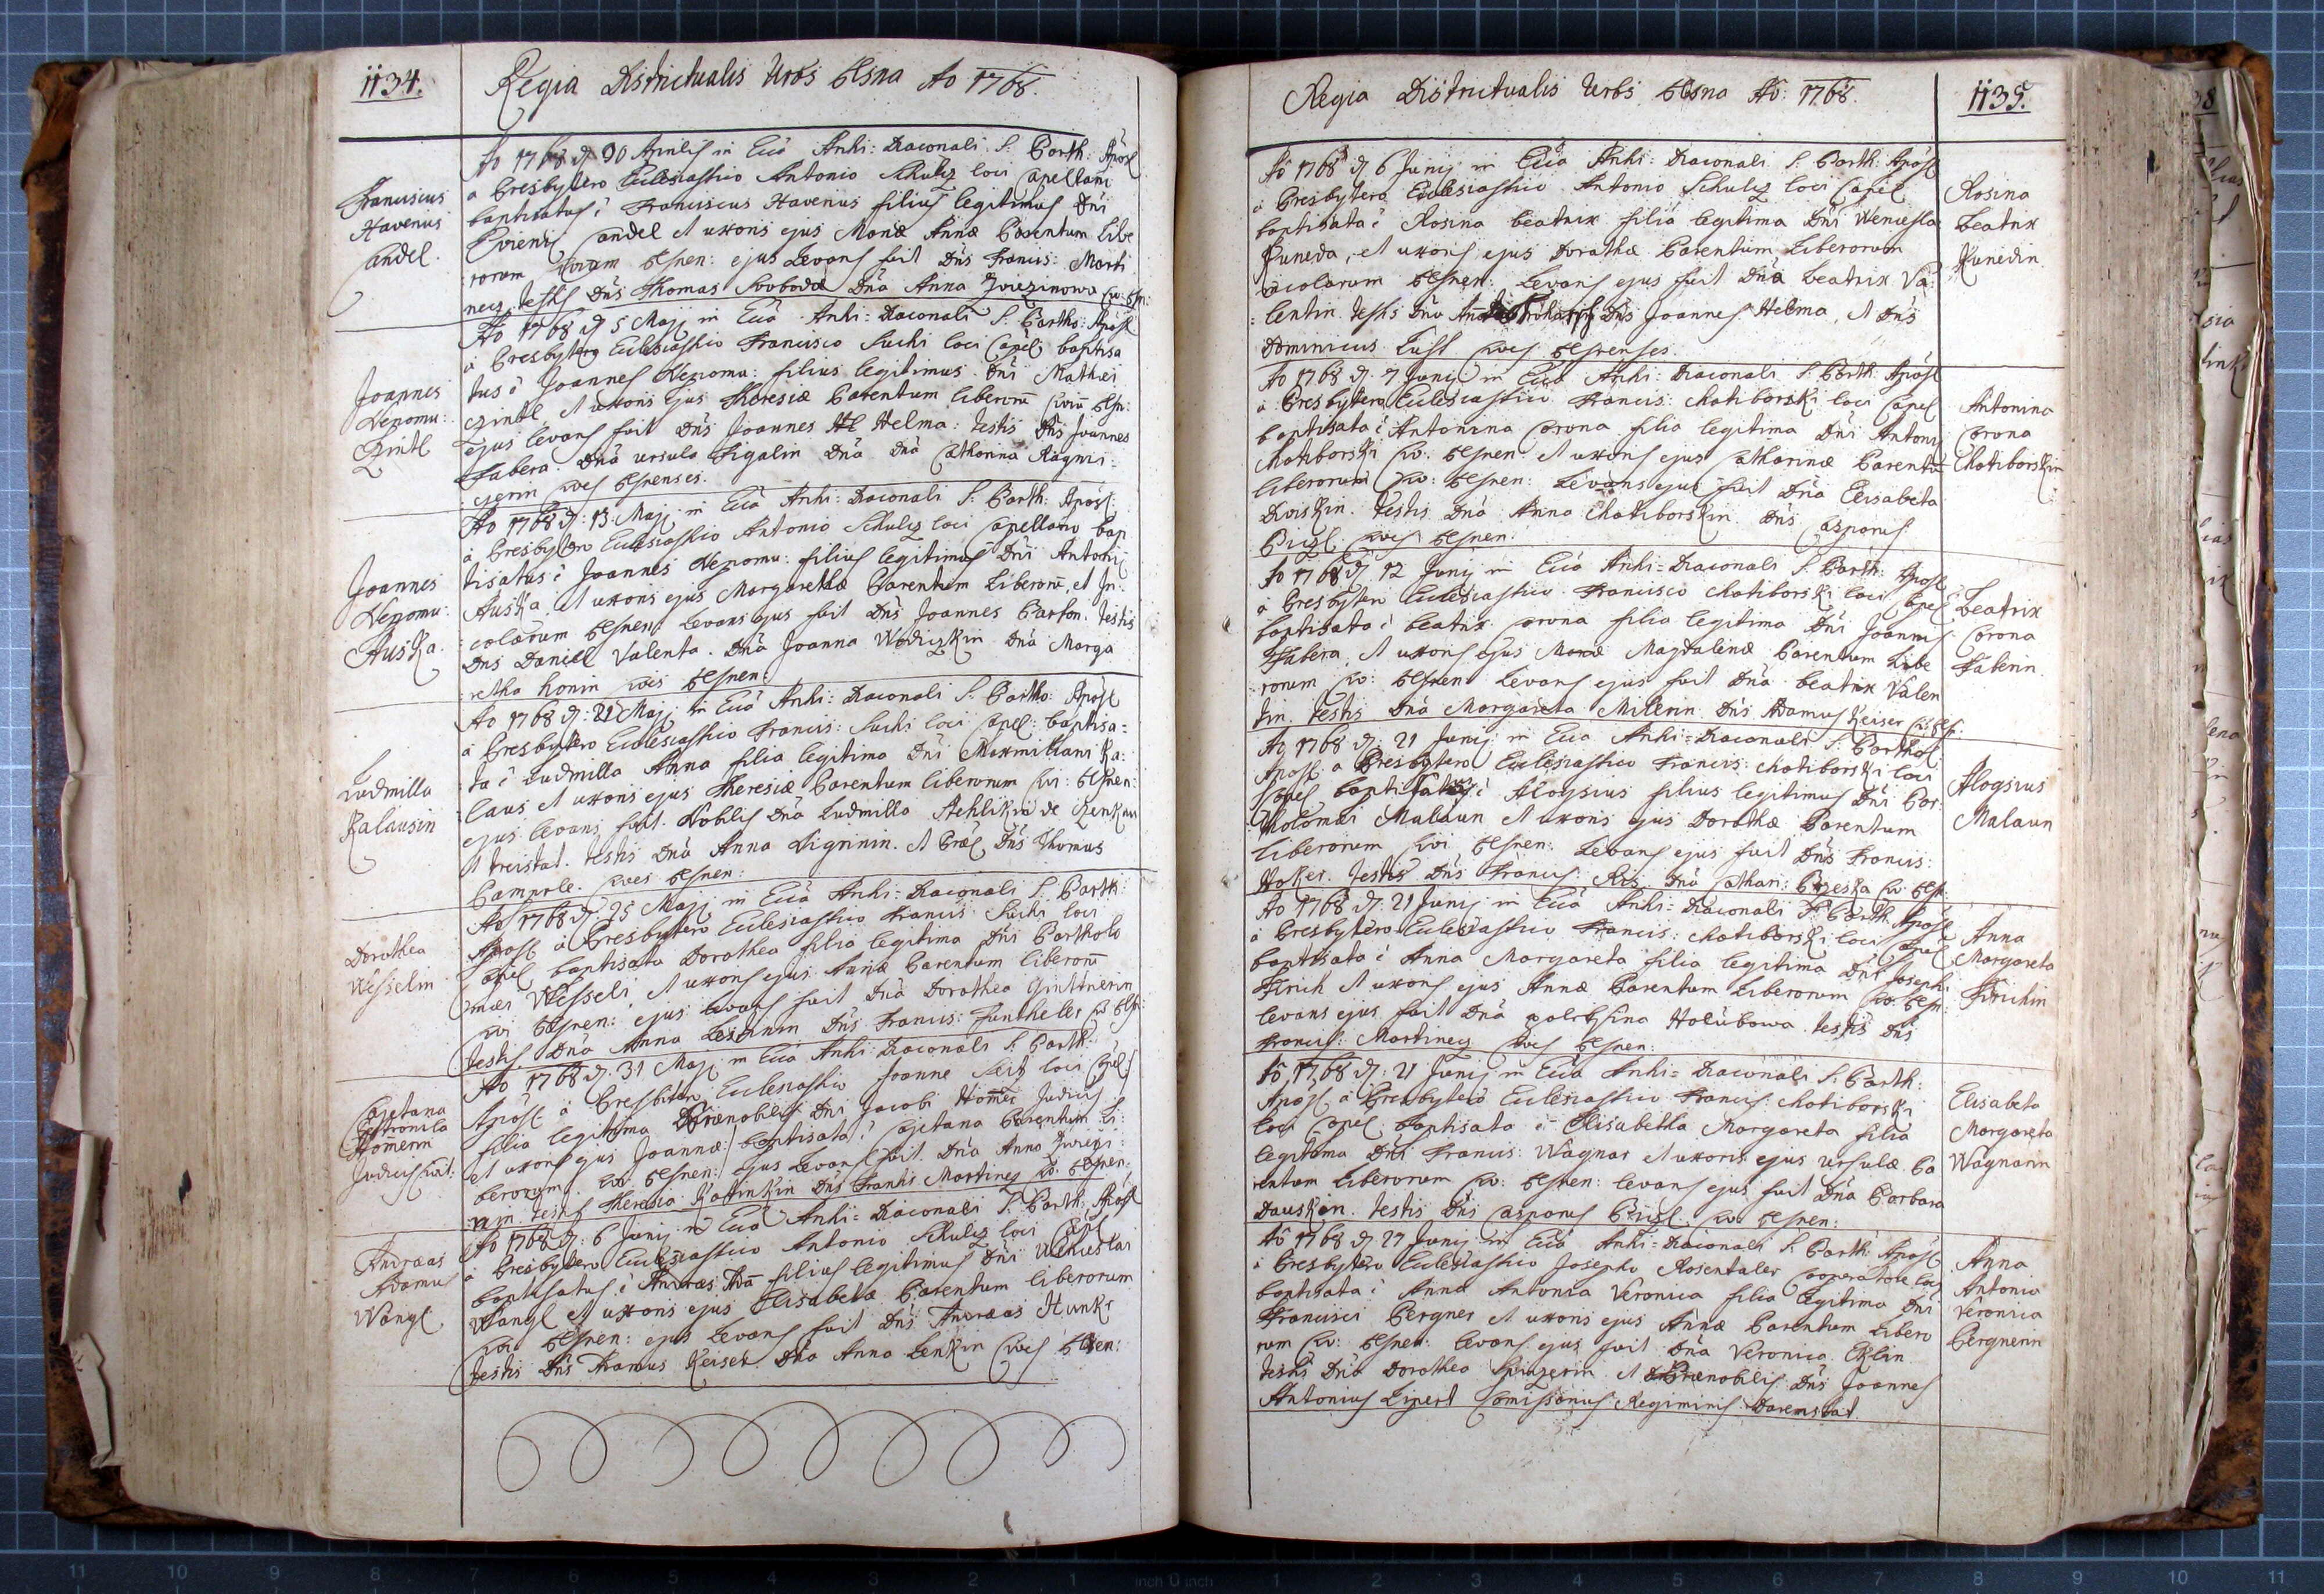 1134.
Regia Districtualis Urbs Plsna Ao 1768.
Franciscus
Xaverius
Candel.
Ao 1768 d 30 Aprilis in Ecia Archi: Diaconali S: Barth: Apost
a Presbytero Ecclesiastico Antonio Schulz loci Capellani
baptisatus ē Franciscus Xaverius filius legitimus Dni
Candel et uxoris ejus Mariæ Annæ Parentum Libe
rorum Civium Plsnen: ejus Levans fuit Dns Francis: Marti
necz. testis Dns Thomas Svoboda Dna Anna Civ: Plsn:
Joannes
Nepomu:
Czintl
Ao 1768 d 5 Maji in Ecia Archi: Diaconali S: Bartho: Apost
a Presbytero Ecclesiastico Francisco Suchi loci Capel: baptisa
tus ē Joannes Nepomu: filius legitimus Dni Mathei
Czintl et uxoris ejus Theresiæ Parentum liberorū Civiū Plsn:
ejus levans fuit Dns Joannes Helma: testis Dns Joannes
Fabera. Dna Ursula Figalin Dna Dna Catharina Ragni:
czerin Cives Plsnenses.
Joannes
Nepomu:
Auska.
Ao 1768 d: 13 Maji in Ecia Archi: Diaconali S: Barth: Apost:
a Presbytero Ecclesiastico Antonio Schulz loci Capellano bap
tisatus ē Joannes Nepomu: filius legitimus Dni Antonii
Auska et uxoris ejus Margarethæ Parentum Liberorū, et In:
colarum Plsnen: Levans ejus fuit Dns Joannes Barton. testis
Dns Daniel Valenta. Dna Joanna Wodiczkin Dna Marga
retha honin Cives Plsnen:
Ludmilla
Kalausin
Ao 1768 d: 21 Maji in Ecia Archi: Diaconali S: Bartho: Apost
a Presbytero Ecclesiastico Francis: Suchi loci Capel: baptisa=
ta ē Ludmilla Anna filia legitima Dni Maxmiliani Ka:
laus et uxoris ejus Theresiæ Parentum liberorum Civi: Plsnen:
ejus levans fuit Nobilis Dna Ludmilla Stehlikin de Czenkau
et treistat. testis Dna Anna Lignirin. et Præ: Dns Thomas
Camprle. Cives Plsnen:
Dorothea
Wesselin
Ao 1768 d: 25 Maji in Ecia Archi: Diaconali S: Barth:
Apost a Presbytero Ecclesiastico Francis: Suchi loci
Capel baptisata Dorothea filia legitima Dni Bartholo
mæi Wesseli et uxoris ejus Annæ Parentum liberorū
Civi Plsnen: ejus levans fuit Dna Dorothea Ginttnerin
testis Dna Anna Francis: Cŏ Plsn:
Cajetana
Pettronila
Homerin
Judicis Civit:
Ao 1768 d: 31 Maji in Ecia Archi: Diaconali S: Barth:
Apost: a Presbitero Ecclesiastico Joanne Seit loci Capel:
filia legitima Prænobilis Dni Jacobi Homer Judicis
et uxoris ejus Joannæ baptisata ē Cajetana Parentum Li:
berorum Civ: Plsnen: ejus Levans fuit Dna Anna
testis Theresia Kottinkin Dns Francis Martinez Civ: Plsnen:
Andraas
Adamus
Wangl
Ao 1768 d: 6 Junij in Ecia Archi: Diaconali S: Barth: Apost
a Presbytero Ecclesiastico Antonio Schulz loci Capel
baptisatus ē Andreas Adā filius legitimus Dni Wenceslai
Wangl et uxoris ejus Elisabetæ Parentum liberorum
Civi Plsnen: ejus Levans fuit Dns Andraas Hunkr
testis Dns Thomas Keiser. Dna Anna Lenkin Cives Plsnen:
Regia Districtualis Urbs Plsna Ao: 1768.
1135.
Ao 1768 d 6 Junij in Ecia Archi: Diaconali S: Barth: Apost
a Presbytero Ecclesiastico Antonio Schulz loci Capel
baptisata ē Rosina beatrix filia legitima Dni Wencesla
Kuneda, et uxoris ejus Dorathæ Parentum Liberorum
incolarum Plsnen: Levans ejus fuit Dna beatrix Va:
lentin testis Dna Dns Joannes Helma, et Dns
Dominicus Lust Cives Plsnenses.
Rosina
beatrix
Kunedin
Ao 1768 d: 7 Junij in Ecia Archi: Diaconali S: Barth: Apost
a Presbytero Ecclesiastico Francis: Chotiborski loci Capel
baptisata ē Antonina Corona filia legitima Dni Antonij
Chotiborski Civ: Plsnen: et uxoris ejus Catharinæ Parentū
liberorum Civ: Plsnen: Levans ejus fuit Dna Elisabeta
Dwiskin. testis Dna Anna Chotiborskin. Dns Casparus
Pizl Cives Plsnen:
Antonina
Corona
Chotiborskin
Ao 1768 d: 12 Junij in Ecia Archi: Diaconali S: Barth: Apost
a Presbytero Ecclesiastico Francisco Chotiborski loci Capel
baptisata ē beatrix Corona filia legitima Dni Joannis
Fabera, et uxoris ejus Mariæ Magdalenæ Parentum Libe
rorum Civ: Plsnen: Levans ejus fuit Dna beatrix Valen
tin. testis Dna Margareta Milerin Dns Adamus Keiser Civ: Plsn:
Beatrix
Corona
Faberin
Ao 1768 d: 21 Junij in Ecia Archi: Diaconali S: Barthol
Apost a Presbytero Ecclesiastico Francis: Chotiborski loci
Capel baptisatus ē Aloysius filius legitimus Dni Bar:
tholomæi Malaun et uxoris ejus Dorothæ Parentum
liberorum Civi Plsnen: Levans ejus fuit Dns Francis:
Woker. testis Dns Francis: Ris Dna Cathari: Brzeska Civ: Plsn
Alogsius
Malaun
Ao 1768 d: 21 Junij in Ecia Archi: Diaconali S: Barth: Apost
a Presbytero Ecclesiastico Francis: Chotiborski loci Capel
baptisata ē Anna Margareta filia legitima Dni Josephi
Firich et uxoris ejus Annæ Parentum Liberorum Civ: Plsn:
levans ejus fuit Dna Holubowa testis Dns
Francis: Martinecz Cives Plsnen:
Anna
Margareta
Firichin
Ao 1768 d: 21 Junij in Ecia Archi: Diaconali S: Barth:
Apost a Presbytero Ecclesiastico Francis: Chotiborski
loci Capel baptisata ē Elisabetha Margareta filia
legitima Dni Francis: Wagnar et uxoris ejus Ursulæ Pa
rentum Liberorum Civ: Plsnen: levans ejus fuit Dna Barbara
Dauskin. testis Dns Casparus Pizl Civ: Plsnen:
Elisabeta
Margareta
Wagnarin
Ao 1768 d 27 Junij in Ecia Archi: Diaconali S: Barth: Apost
a Presbytero Ecclesiastico Josepho Rosentaler Cooperatore loci
baptisata ē Anna Antonia Veronica filia legitima Dni
Francisci Bergner et uxoris ejus Annæ Parentum Libero
rum Civ: Plsnen: levans ejus fuit Dna Veronica Eklin
testis Dna Dorothea Spinzerin et Prænobilis Dns Joannes
Antonius Lipert Comissarius Regiminis Darmstat
Anna
Antonia
Veronica
Bergnerin
11 10 9 8 7 6 5 4 3 2 1 inch 0 inch 1 2 3 4 5 6 7 8 9 10 11